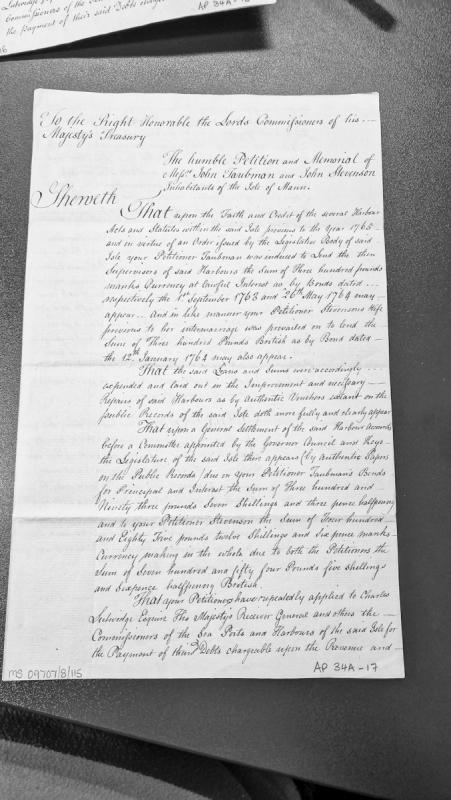 Lutwidge
Commissioners of the Sea
the payment of their said Debts charge
AP 34A-16
16
To the Right Honorable the Lords Commissioners of his ....
Majesty's Treasury
The humble Petition and Memorial of
Messrs. John Taubman and John Stevenson
Inhabitants of the Isle of Mann.
Sheweth
That upon the Faith and Credit of the several Harbour
Acts and Statutes within the said Isle previous to the Year 1765
and in virtue of an Order issued by the Legislative Body of said
Isle your Petitioner Taubman was induced to Lend the then
Supervisors of said Harbours the Sum of Three hundred pounds
manks Currency at lawful Interest as by Bonds dated ...
respectively the 1st September 1763 and 26th May 1764 may
appear ... And in like manner your Petitioner Stevensons Wife
previous to her intermarriage was prevailed on to lend the
Sum of Three hundred Pounds British as by Bond dated
the 12th January 1764 may also appear.
That the said Loans and Sums were accordingly ....
expended and laid out in the Improvement and necessary
Repairs of said Harbours as by Authentic Vouchers extant on the
public Records of the said Isle doth more fully and clearly appear
That upon a General Settlement of the said Harbour Accounts
before a Committee appointed by the Governor Council and Keys
the Legislature of the said Isle there appears (by authentic Papers
on the Public Records) due on your Petitioner Taubman's Bonds
for Principal and Interest the Sum of Three hundred and
Ninety three pounds Seven Shillings and three pence halfpenny
and to your Petitioner Stevenson the Sum of Four hundred
and Eighty Five pounds twelve Shillings and Six pence manks
Currency making in the whole due to both the Petitioners the
Sum of Seven hundred and fifty four Pounds five shillings
and Sixpence halfpenny British.
That your Petitioners have repeatedly applied to Charles
Lutwidge Esquire His Majestys Receiver General and others the
Commissioners of the Sea Ports and Harbours of the said Isle for
the Payment of their Debts chargeable upon the Revenue and
MS 09707/8/115
AP 34A-17